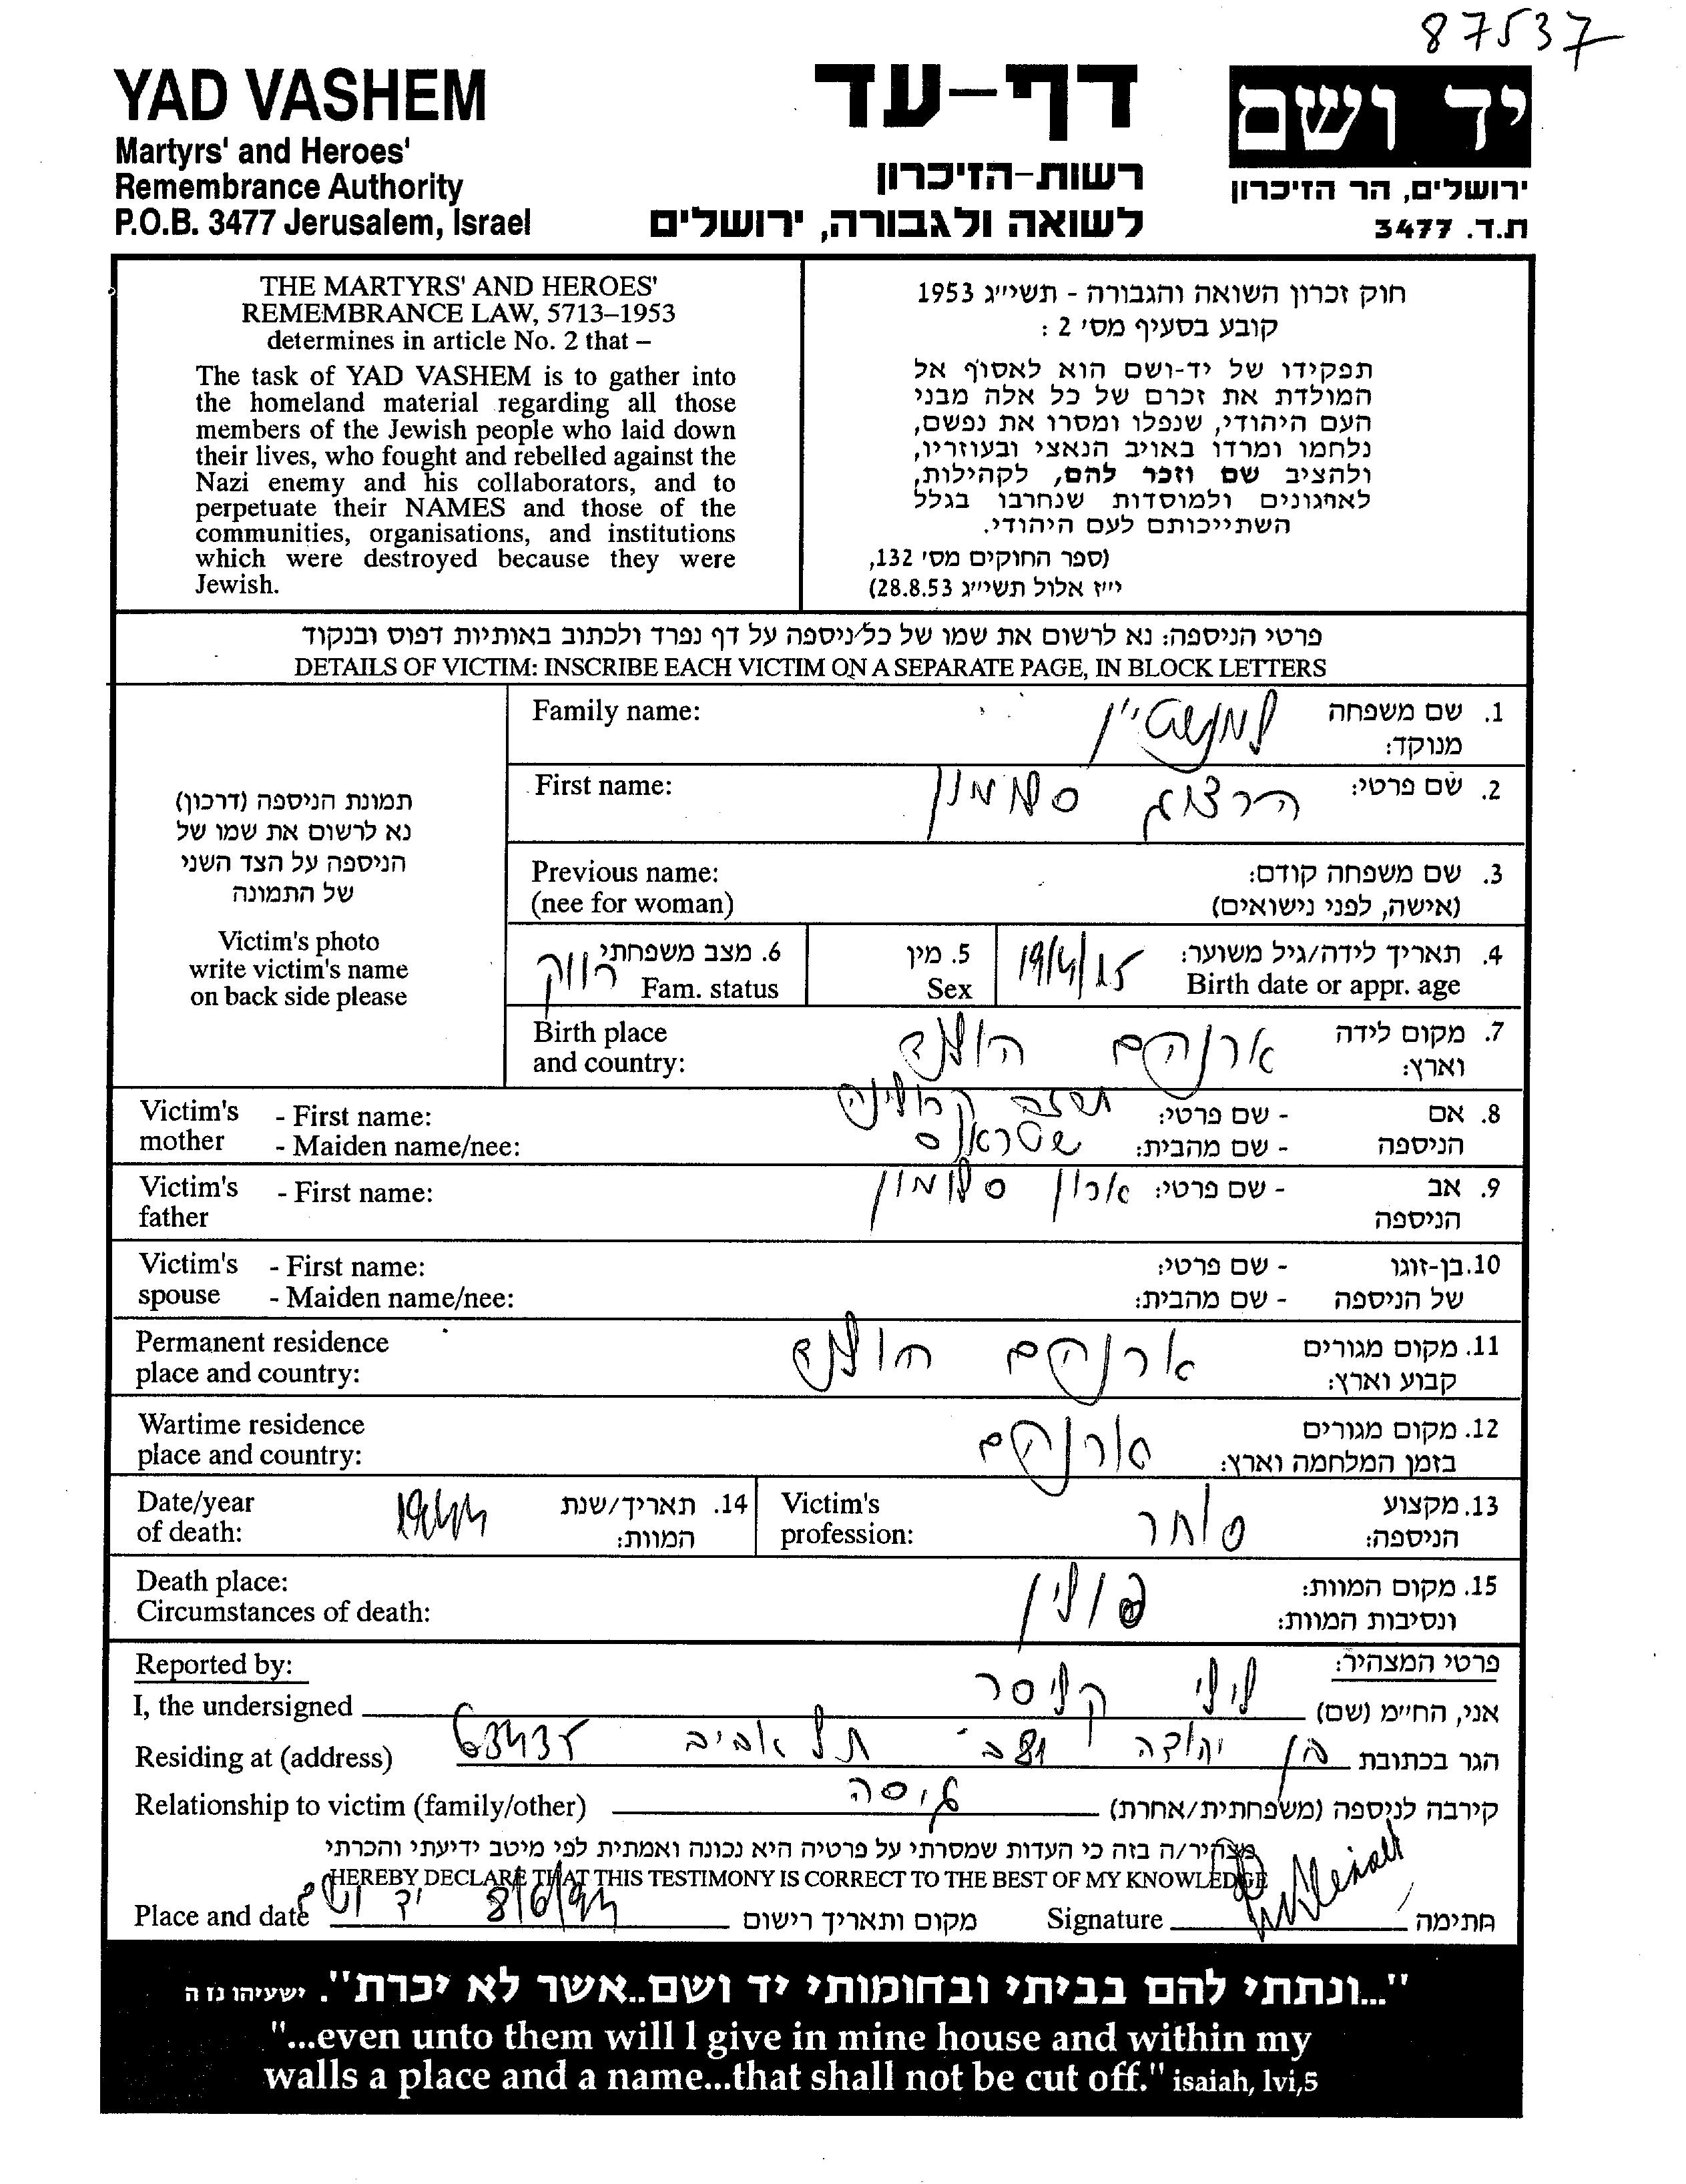 87537
YAD VASHEM
Martyrs' and Heroes'
Remembrance Authority
P.O.B. 3477 Jerusalem, Israel
דף-עד
רשות-הזיכרון
לשואה ולגבורה, ירושלים
יד ושם
ירושלים, הר הזיכרון
ת.ד. 3477
THE MARTYRS' AND HEROES'
REMEMBRANCE LAW, 5713–1953
determines in article No. 2 that –
The task of YAD VASHEM is to gather into
the homeland material regarding all those
members of the Jewish people who laid down
their lives, who fought and rebelled against the
Nazi enemy and his collaborators, and to
perpetuate their NAMES and those of the
communities, organisations, and institutions
which were destroyed because they were
Jewish.
חוק זכרון השואה והגבורה - תשי״ג 1953
קובע בסעיף מס׳ 2 :
תפקידו של יד-ושם הוא לאסוף אל
המולדת את זכרם של כל אלה מבני
העם היהודי, שנפלו ומסרו את נפשם,
נלחמו ומרדו באויב הנאצי ובעוזריו,
ולהציב שם וזכר להם, לקהילות,
לארגונים ולמוסדות שנחרבו בגלל
השתייכותם לעם היהודי.
(ספר החוקים מס׳ 132,
י״ז אלול תשי״ג 28.8.53)
פרטי הניספה: נא לרשום את שמו של כל ניספה על דף נפרד ולכתוב באותיות דפוס ובנקוד
DETAILS OF VICTIM: INSCRIBE EACH VICTIM ON A SEPARATE PAGE, IN BLOCK LETTERS
תמונת הניספה (דרכון)
נא לרשום את שמו של
הניספה על הצד השני
של התמונה
Victim's photo
write victim's name
on back side please
Family name:
1. שם משפחה
מנוקד:
First name: הרצוג סלומון
2. שם פרטי:
Previous name:
(nee for woman)
3. שם משפחה קודם:
(אישה, לפני נישואים)
4. תאריך לידה/גיל משוער:
Birth date or appr. age
19/4/15
5. מין
Sex
6. מצב משפחתי
Fam. status
רווק
Birth place
and country:
ארנהם הולנד
7. מקום לידה
וארץ:
Victim's mother
- First name:
- Maiden name/nee:
8. אם הניספה
- שם פרטי: קרולינה
- שם מהבית:
Victim's father
- First name:
9. אב הניספה
- שם פרטי: ארון סלומון
Victim's spouse
- First name:
- Maiden name/nee:
10. בן-זוגו של הניספה
- שם פרטי:
- שם מהבית:
Permanent residence
place and country:
ארנהם הולנד
11. מקום מגורים
קבוע וארץ:
Wartime residence
place and country:
ארנהם
12. מקום מגורים
בזמן המלחמה וארץ:
Victim's
profession:
סוחר
13. מקצוע
הניספה:
Date/year
of death:
1944
14. תאריך/שנת
המוות:
Death place:
Circumstances of death:
פולין
15. מקום המוות:
ונסיבות המוות:
Reported by:
פרטי המצהיר:
I, the undersigned
אני, החי״מ (שם) לילי קליסר
Residing at (address)
הגר בכתובת בן יהודה תל אביב 63437
Relationship to victim (family/other)
קירבה לניספה (משפחתית/אחרת) גיסה
מצהיר/ה בזה כי העדות שמסרתי על פרטיה היא נכונה ואמתית לפי מיטב ידיעתי והכרתי
HEREBY DECLARE THAT THIS TESTIMONY IS CORRECT TO THE BEST OF MY KNOWLEDGE
Place and date
יד ושם 8/6/94
מקום ותאריך רישום
Signature
חתימה
"...ונתתי להם בביתי ובחומותי יד ושם..אשר לא יכרת". ישעיהו נז ה
"...even unto them will I give in mine house and within my
walls a place and a name...that shall not be cut off." isaiah, lvi,5